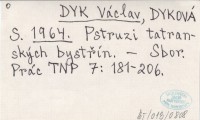 DYK Václav, DYKOVÁ
S. 1964. Pstruzi tatran-
ských bystřín. - Sbor.
Prác TNP 7: 181-206.